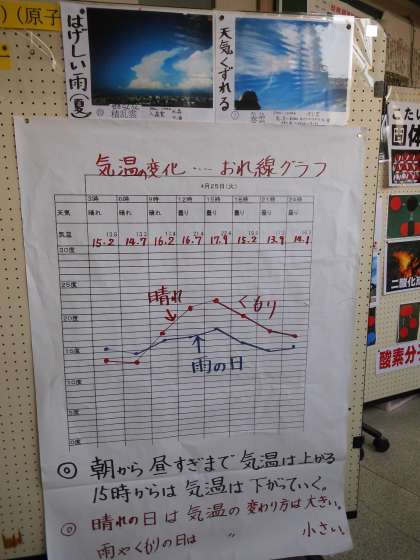 (原子
はげしい雨
(夏)
積乱雲
天気くずれる
巻雲
気温の変化……おれ線グラフ
4月25日(火)
3時 6時 9時 12時 15時 18時 21時 24時
天気 晴れ 晴れ 晴れ 曇り 曇り 曇り 曇り 曇り
気温
15.2 14.7 16.2 16.7 17.9 15.2 13.9 14.1
30度
25度
20度
晴れ くもり
15度
雨の日
10度
5度
0度
◎ 朝から昼すぎまで気温は上がる
15時からは気温は下がっていく。
◎ 晴れの日は気温の変わり方は大きい。
雨やくもりの日は 〃 小さい。
こたい
固体
二酸化炭
酸素分子